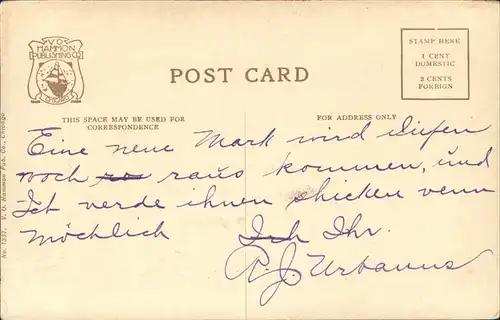 V.O.
HAMMON
PUBLISHING CO.
CHICAGO
POST CARD
STAMP HERE
1 CENT
DOMESTIC
2 CENTS
FOREIGN
THIS SPACE MAY BE USED FOR
CORRESPONDENCE
FOR ADDRESS ONLY
No. 1337. V. O. Hammon Pub. Co., Chicago
Eine neue Mark wird diesen
woch raus kommen, und
Ich verde ihnen shicken venn
möchlich Ich Ihr.
R. J. Urbanus